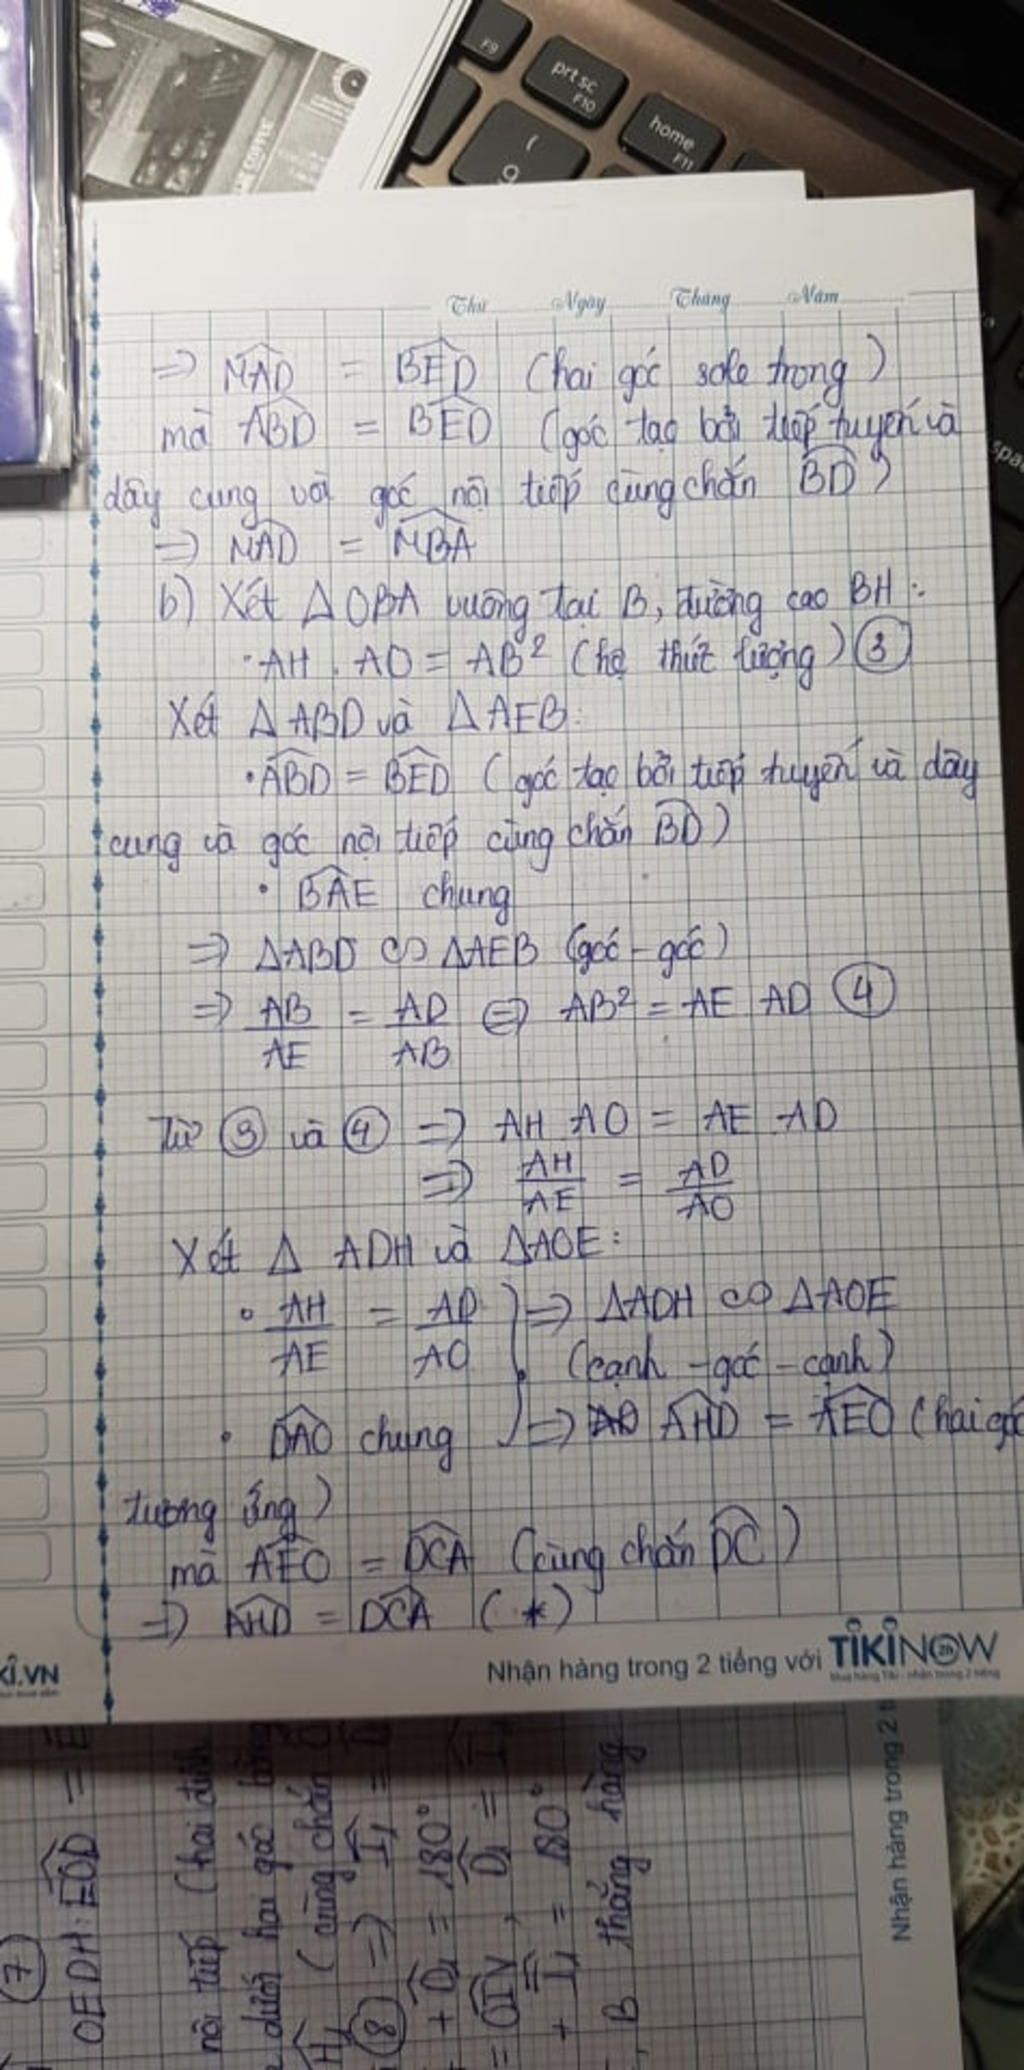 F9
prt sc
F10
home
F11
(
9
Thứ Ngày Tháng Năm
=> M̂AD = B̂ED (hai góc sole trong)
mà ÂBD = B̂ED (góc tạo bởi tiếp tuyến và
dây cung và góc nội tiếp cùng chắn B͡D)
=> M̂AD = M̂BA
b) Xét Δ OBA vuông tại B, đường cao BH:
· AH . AO = AB² (hệ thức lượng) ③
Xét Δ ABD và Δ AEB:
· ÂBD = B̂ED (góc tạo bởi tiếp tuyến và dây
cung và góc nội tiếp cùng chắn B͡D)
· B̂AE chung
=> ΔABD ∽ ΔAEB (góc - góc)
=> AB/AE = AD/AB <=> AB² = AE AD ④
Từ ③ và ④ => AH AO = AE AD
=> AH/AE = AD/AO
Xét Δ ADH và ΔAOE:
· AH/AE = AD/AO => ΔADH ∽ ΔAOE
(cạnh - góc - cạnh)
· D̂AO chung => ÂHD = ÂEO (hai góc
tương ứng)
mà ÂEO = D̂CA (cùng chắn D͡C)
=> ÂHD = D̂CA (*)
KI.VN
Nhận hàng trong 2 tiếng với TIKINOW
⑦
OEDH: ÊOD =
nội tiếp (hai đỉnh
dưới hai góc bằng
(cùng chắn
⑧ => Î₁ =
+ D̂₁ = 180°
= ÔIV, D̂₁ =
+ I₁ = 180°
, B thẳng hàng
Nhận hàng trong 2 t